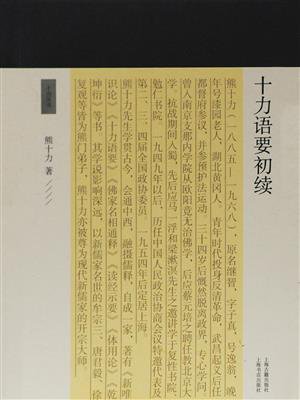 十力语要初续
上海古籍出版社
上海书店出版社
熊十力（一八八五—一九六八），原名继智，字子真，号逸翁，晚
年号漆园老人，湖北黄冈人。青年时代投身反清革命，武昌起义后任
都督府参议，并参预护法运动，三十四岁后慨然脱离政界，专心学问，
曾入南京支那内学院从欧阳竟无治佛学，后应蔡元培之聘任教北京大
学。抗战期间入蜀，先后应马一浮和梁漱溟先生之邀讲学于复性书院、
勉仁书院。一九四九年以后，历任中国人民政治协商会议特邀代表及
第二、三、四届全国政协委员。一九五四年后定居上海。
熊十力先生学贯古今，会通中西，融摄儒释，自成一家，著有《新唯
识论》《十力语要》《佛家名相通释》《读经示要》《体用论》《乾
坤衍》等书，其学说影响深远，以新儒家名世的牟宗三、唐君毅、徐
复观等皆为熊门弟子，熊十力亦被尊为现代新儒家的开宗大师。
十力丛书
熊十力 著